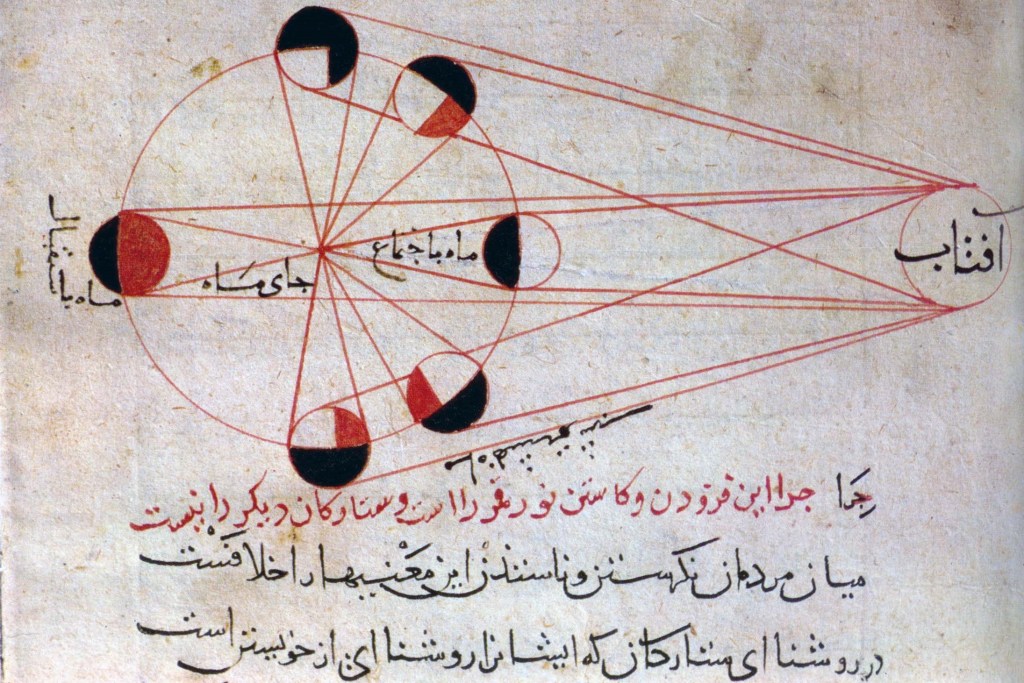 افتاب
ماه باجتماع
جای مَاه
ماه باستقبال
جِرَا جرا این فزودن و کاستن نور قمر را است و ستارکان دیکر را نیست
میان مردمان نکرستن و ناسندن این مَعْنیها را خلافَسْت
در روشنا ای ستارکان که ایشانرا روشنا ای از خویشتن است